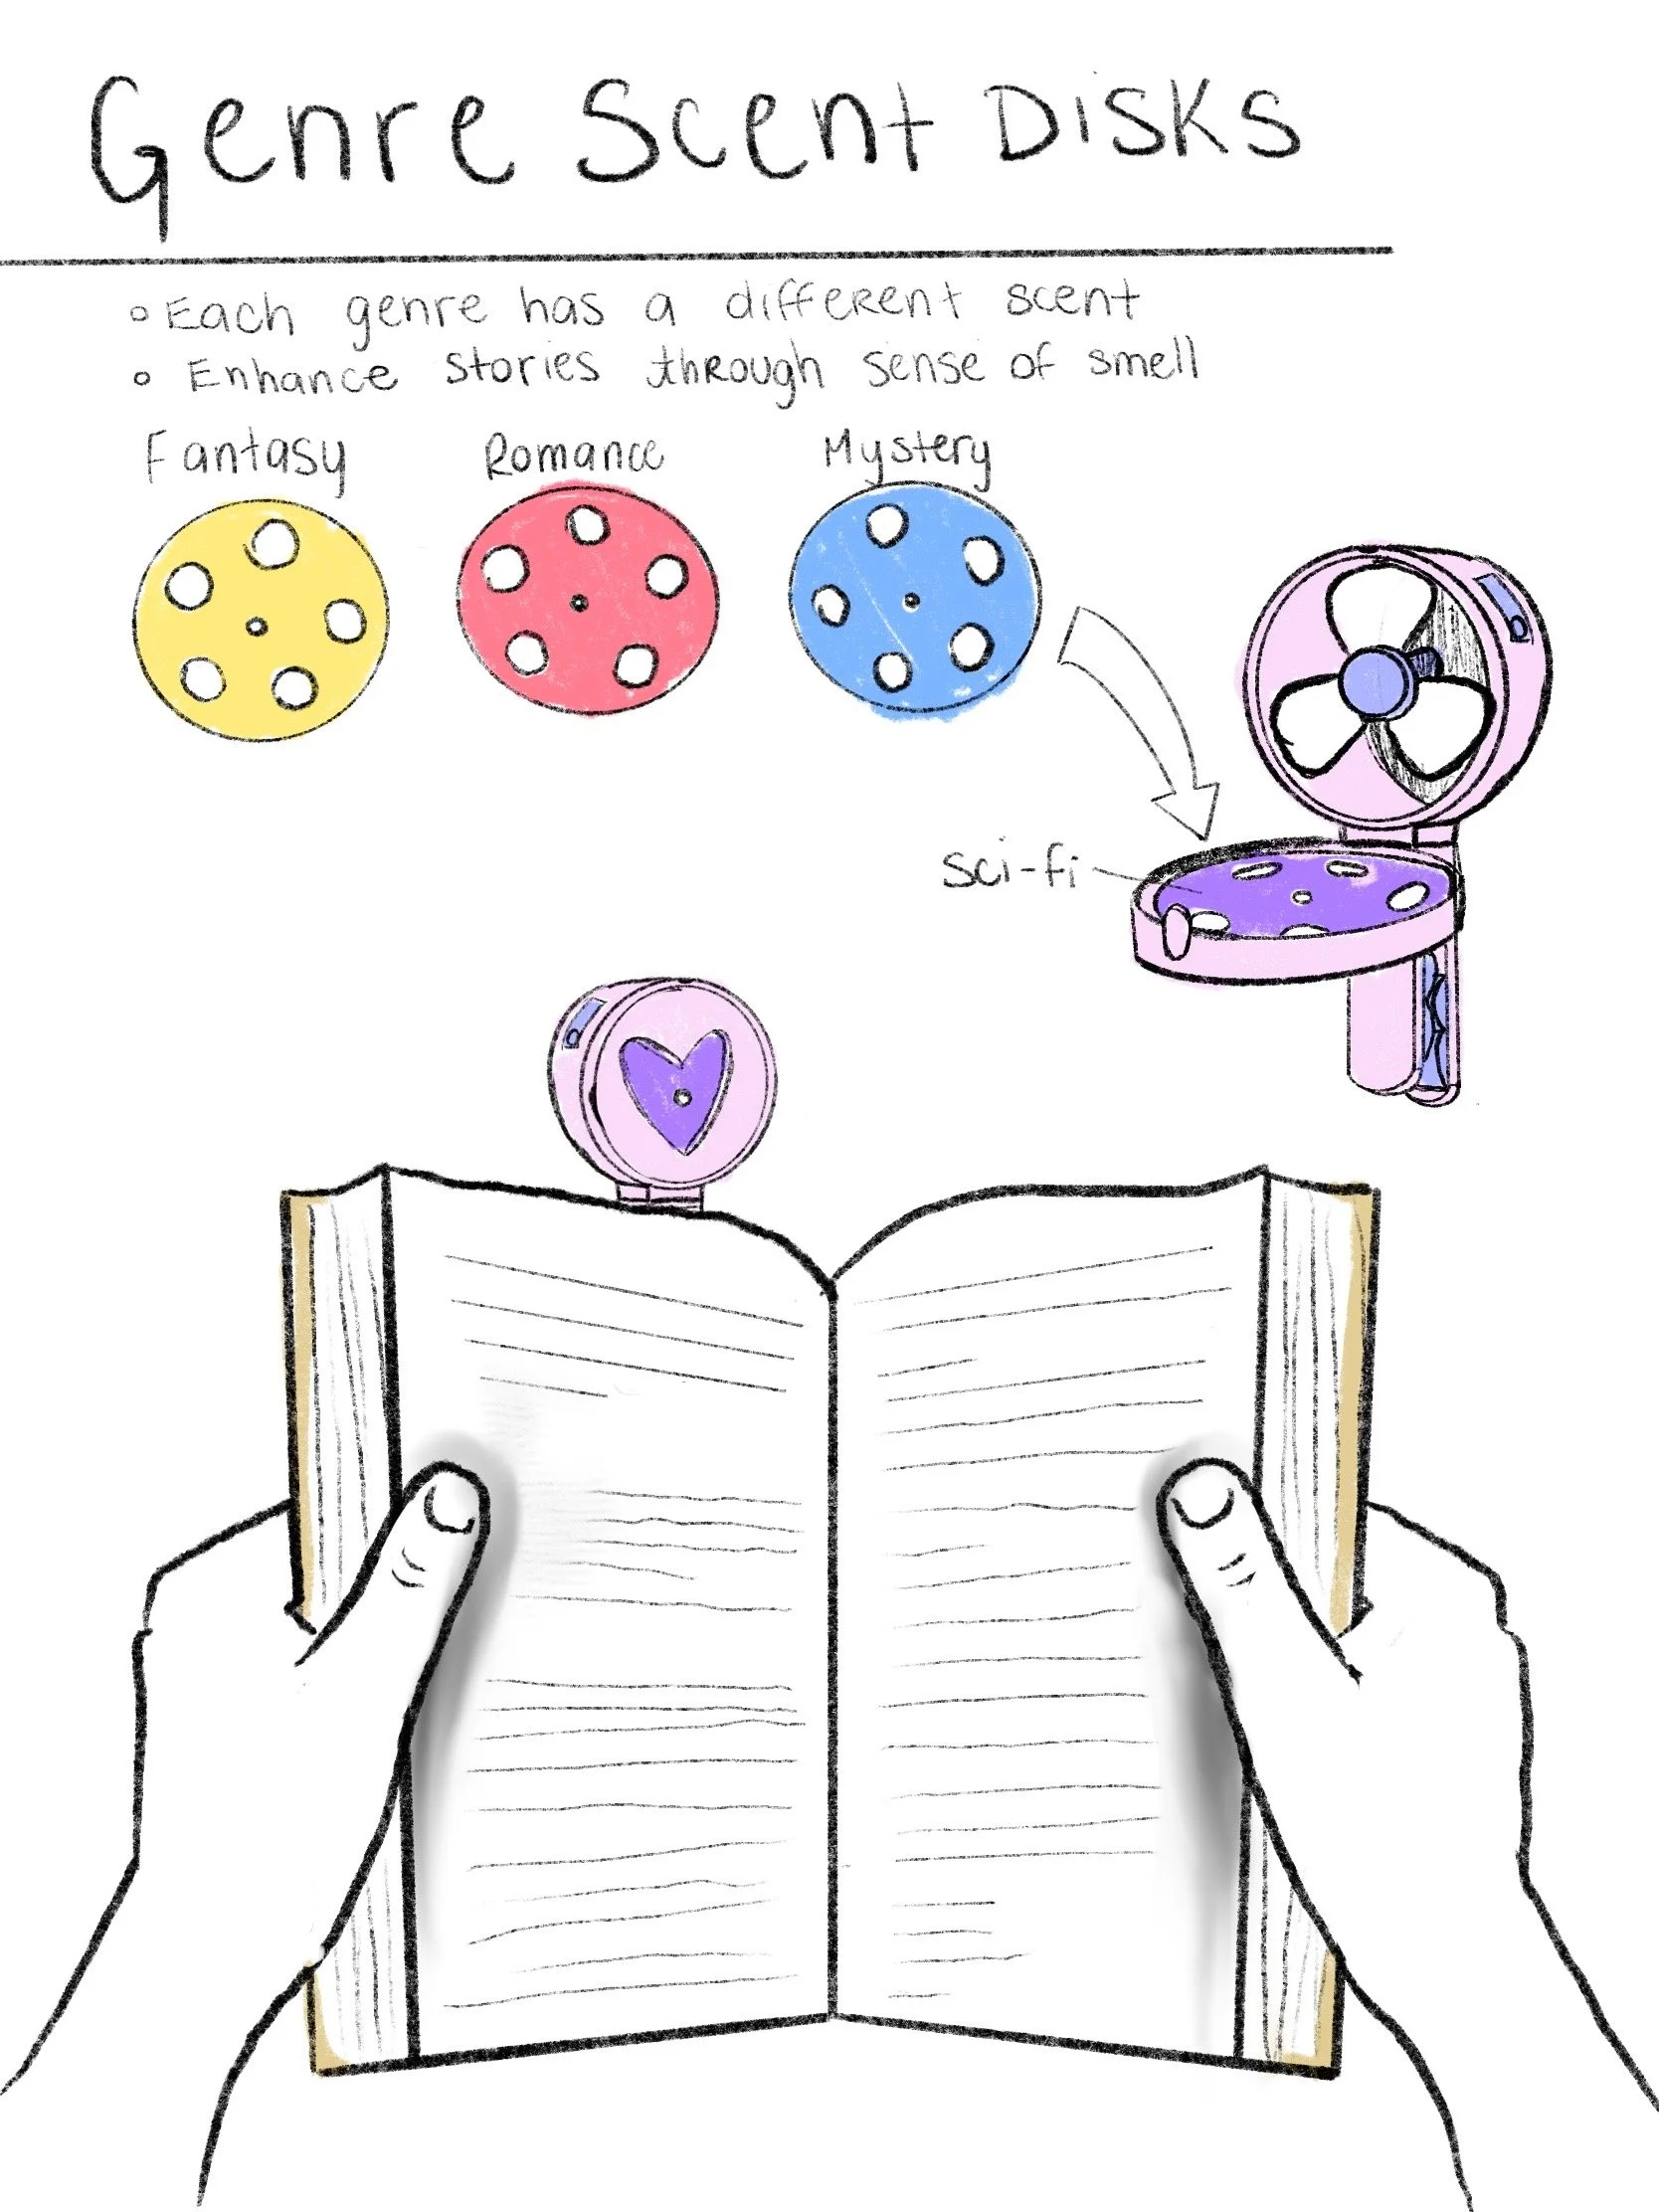 Genre Scent Disks
◦ Each genre has a different scent
◦ Enhance stories through sense of smell
Fantasy
Romance
Mystery
sci-fi